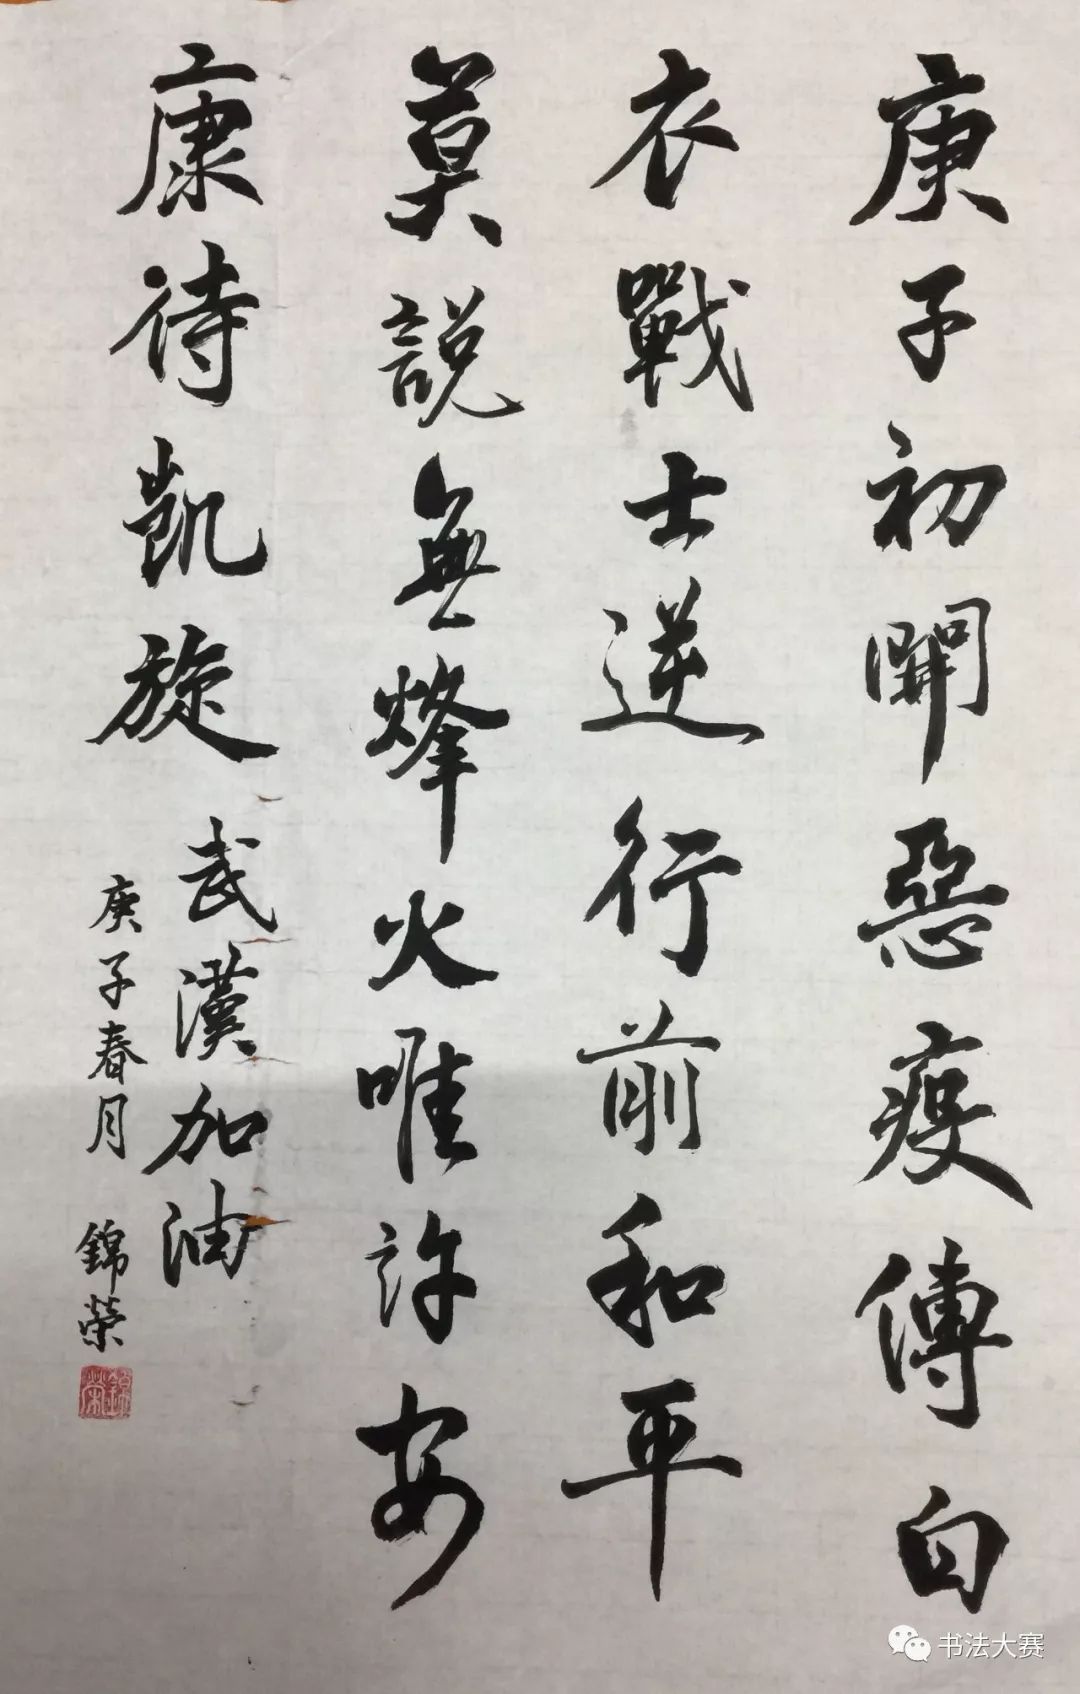 庚子初聞惡疫傳白
衣戰士逆行前和平
莫説無烽火唯許安
康待凱旋
武漢加油
庚子春月 錦榮
錦榮
书法大赛